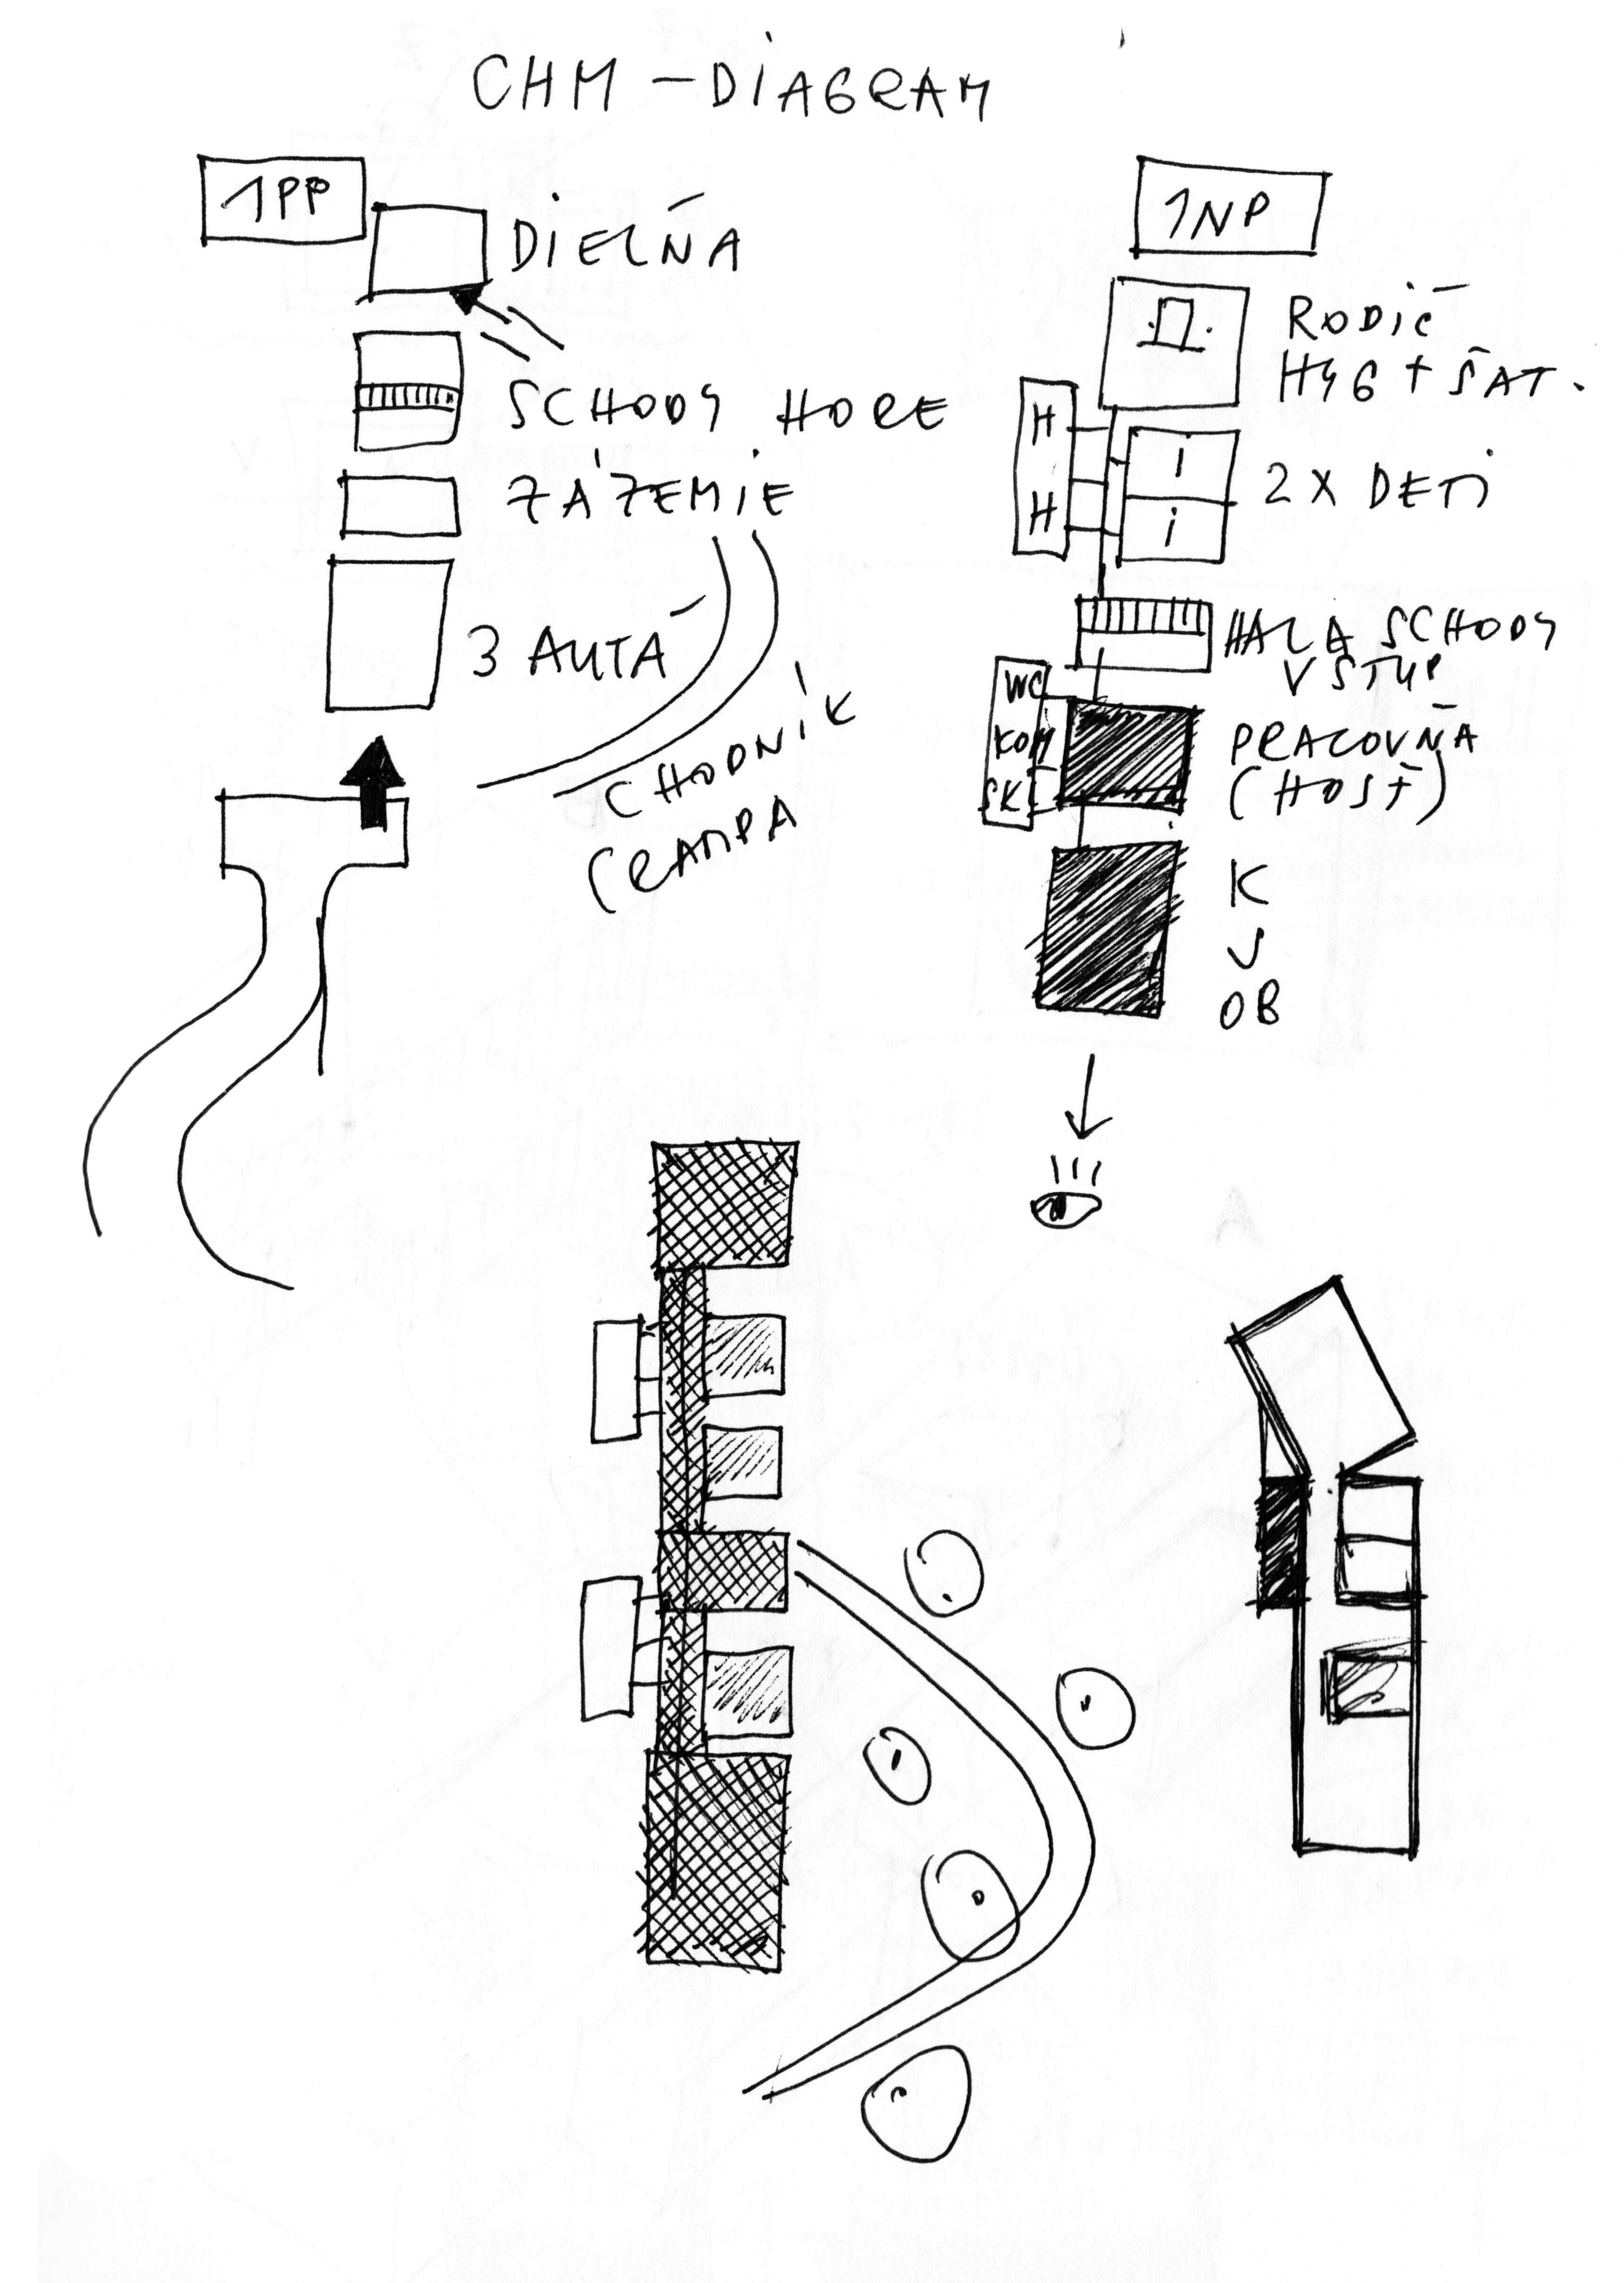 CHM - DIAGRAM
1PP
DIELŇA
SCHODY HORE
ZÁZEMIE
3 AUTÁ
CHODNÍK
(RAMPA
1NP
RODIČ
HYG + ŠAT.
H
H
i
i
2 X DETI
HALA SCHODY
VSTUP
WC
KOM
SK
PRACOVŇA
(HOSŤ)
K
J
OB